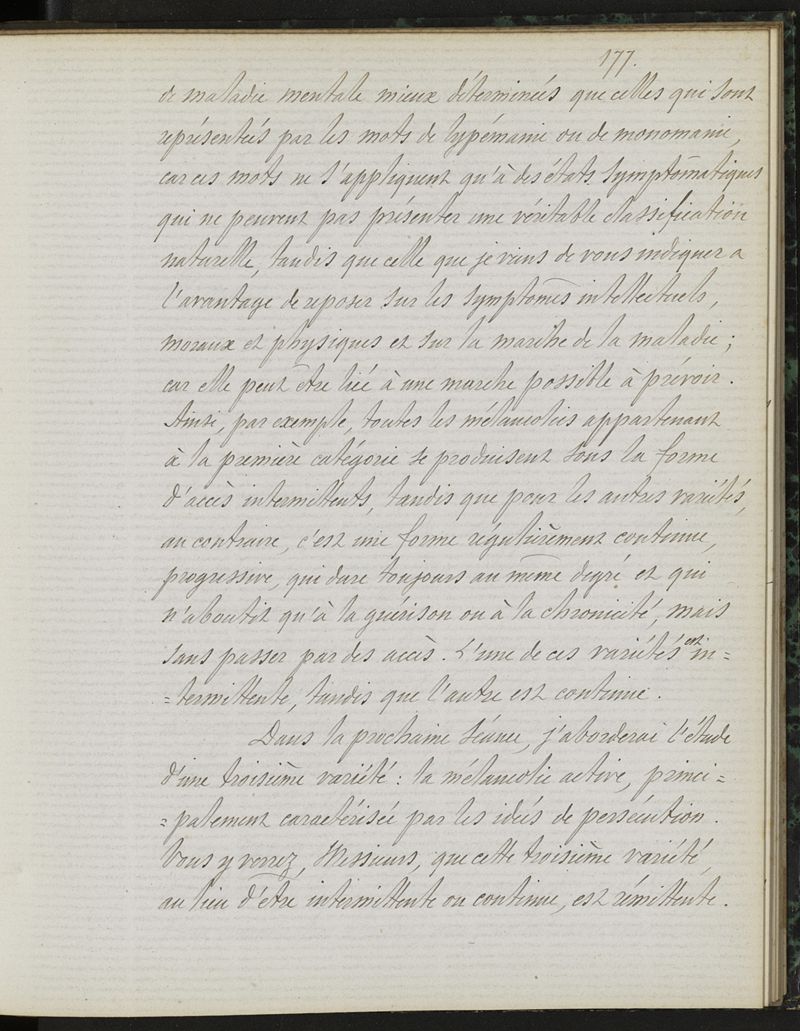 177.
de maladie mentale mieux déterminées que celles qui sont
représentées par les mots de lypémanie ou de monomanie,
car ces mots ne s'appliquent qu'à des états symptômatiques
qui ne peuvent pas présenter une véritable classification
naturelle, tandis que celle que je viens de vous indiquer a
l'avantage de reposer sur les symptômes intellectuels,
moraux et physiques et sur la marche de la maladie ;
car elle peut être liée à une marche possible à prévoir.
Ainsi, par exemple, toutes les mélancolies appartenant
à la première catégorie se produisent sous la forme
d'accès intermittents, tandis que pour les autres variétés,
au contraire, c'est une forme régulièrement continue,
progressive, qui dure toujours au même degré et qui
n'aboutit qu'à la guérison ou à la chronicité, mais
sans passer par des accès. L'une de ces variétés est in=
=termittente, tandis que l'autre est continue.
Dans la prochaine séance, j'aborderai l'étude
d'une troisième variété : la mélancolie active, princi=
=palement caractérisée par les idées de persécution.
Vous y verrez, Messieurs, que cette troisième variété,
au lieu d'être intermittente ou continue, est rémittente.